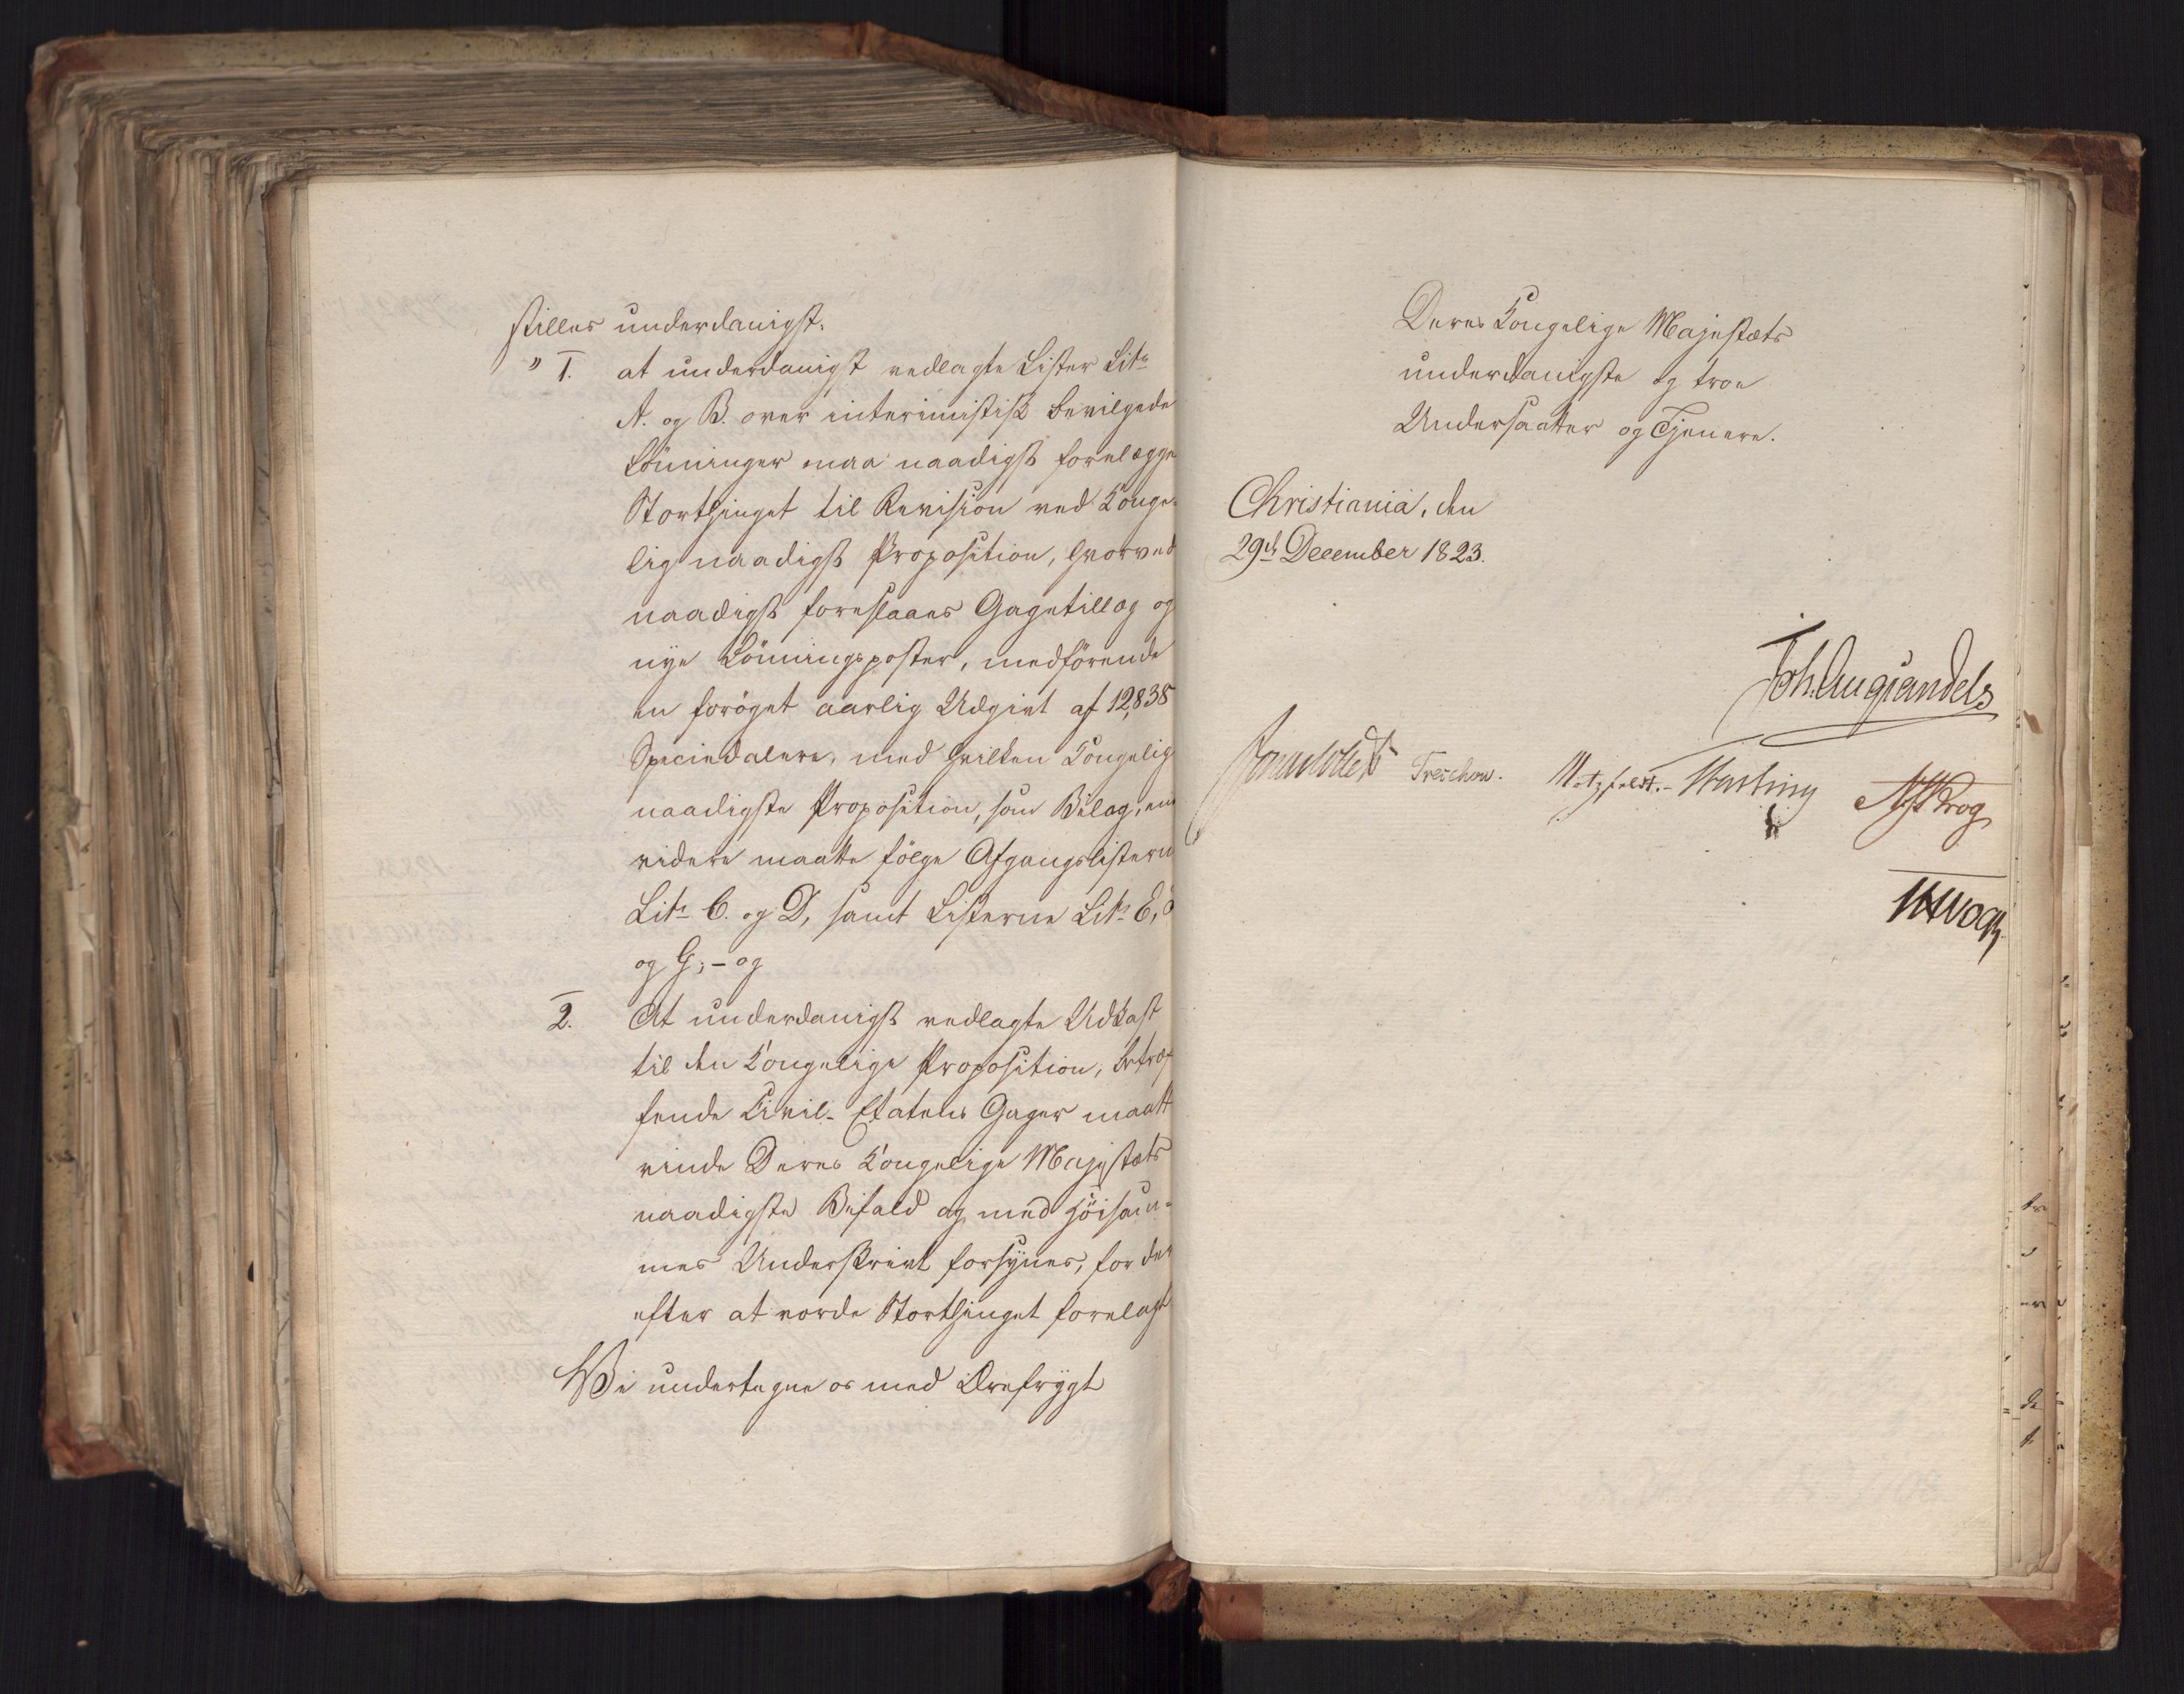 stilles underdanigst:
" 1. at underdanigst vedlagte Lister Litr
A. og B. over interimistisk bevilgede
Lönninger maa naadigst forelægges
Storthinget til Revision ved Konge-
lig naadigst Proposition, hvorved
naadigst foreslaaes Gagetillæg og
nye Lönningsposter, medförende
en foröget aarlig Udgivt af 12,838
Speciedalere, med hvilken Kongelig
naadigste Proposition, som Bilag, en
videre maatte fölge Afgangslisterne
Litr C. og D, samt Listerne Litr E,
og G; - og
2. At underdanigst vedlagte Udkast
til den Kongelige Proposition, betræf
fende Civil-Etatens Gager maatte
vinde Deres Kongelige Majestæts
naadigste Bifald og med Höisam-
mes Underskrivt forsynes, for der
efter at vorde Storthinget forelagt
Vi undertegne os med Ærefrygt
Deres Kongelige Majestæts
underdanigste og troe
Undersaatter og Tjenere.
Christiania, den
29de December 1823.
Joh. Aug Sandels
Sommerhielm Treschow. Motzfeldt. Hasting Krog
Vogt